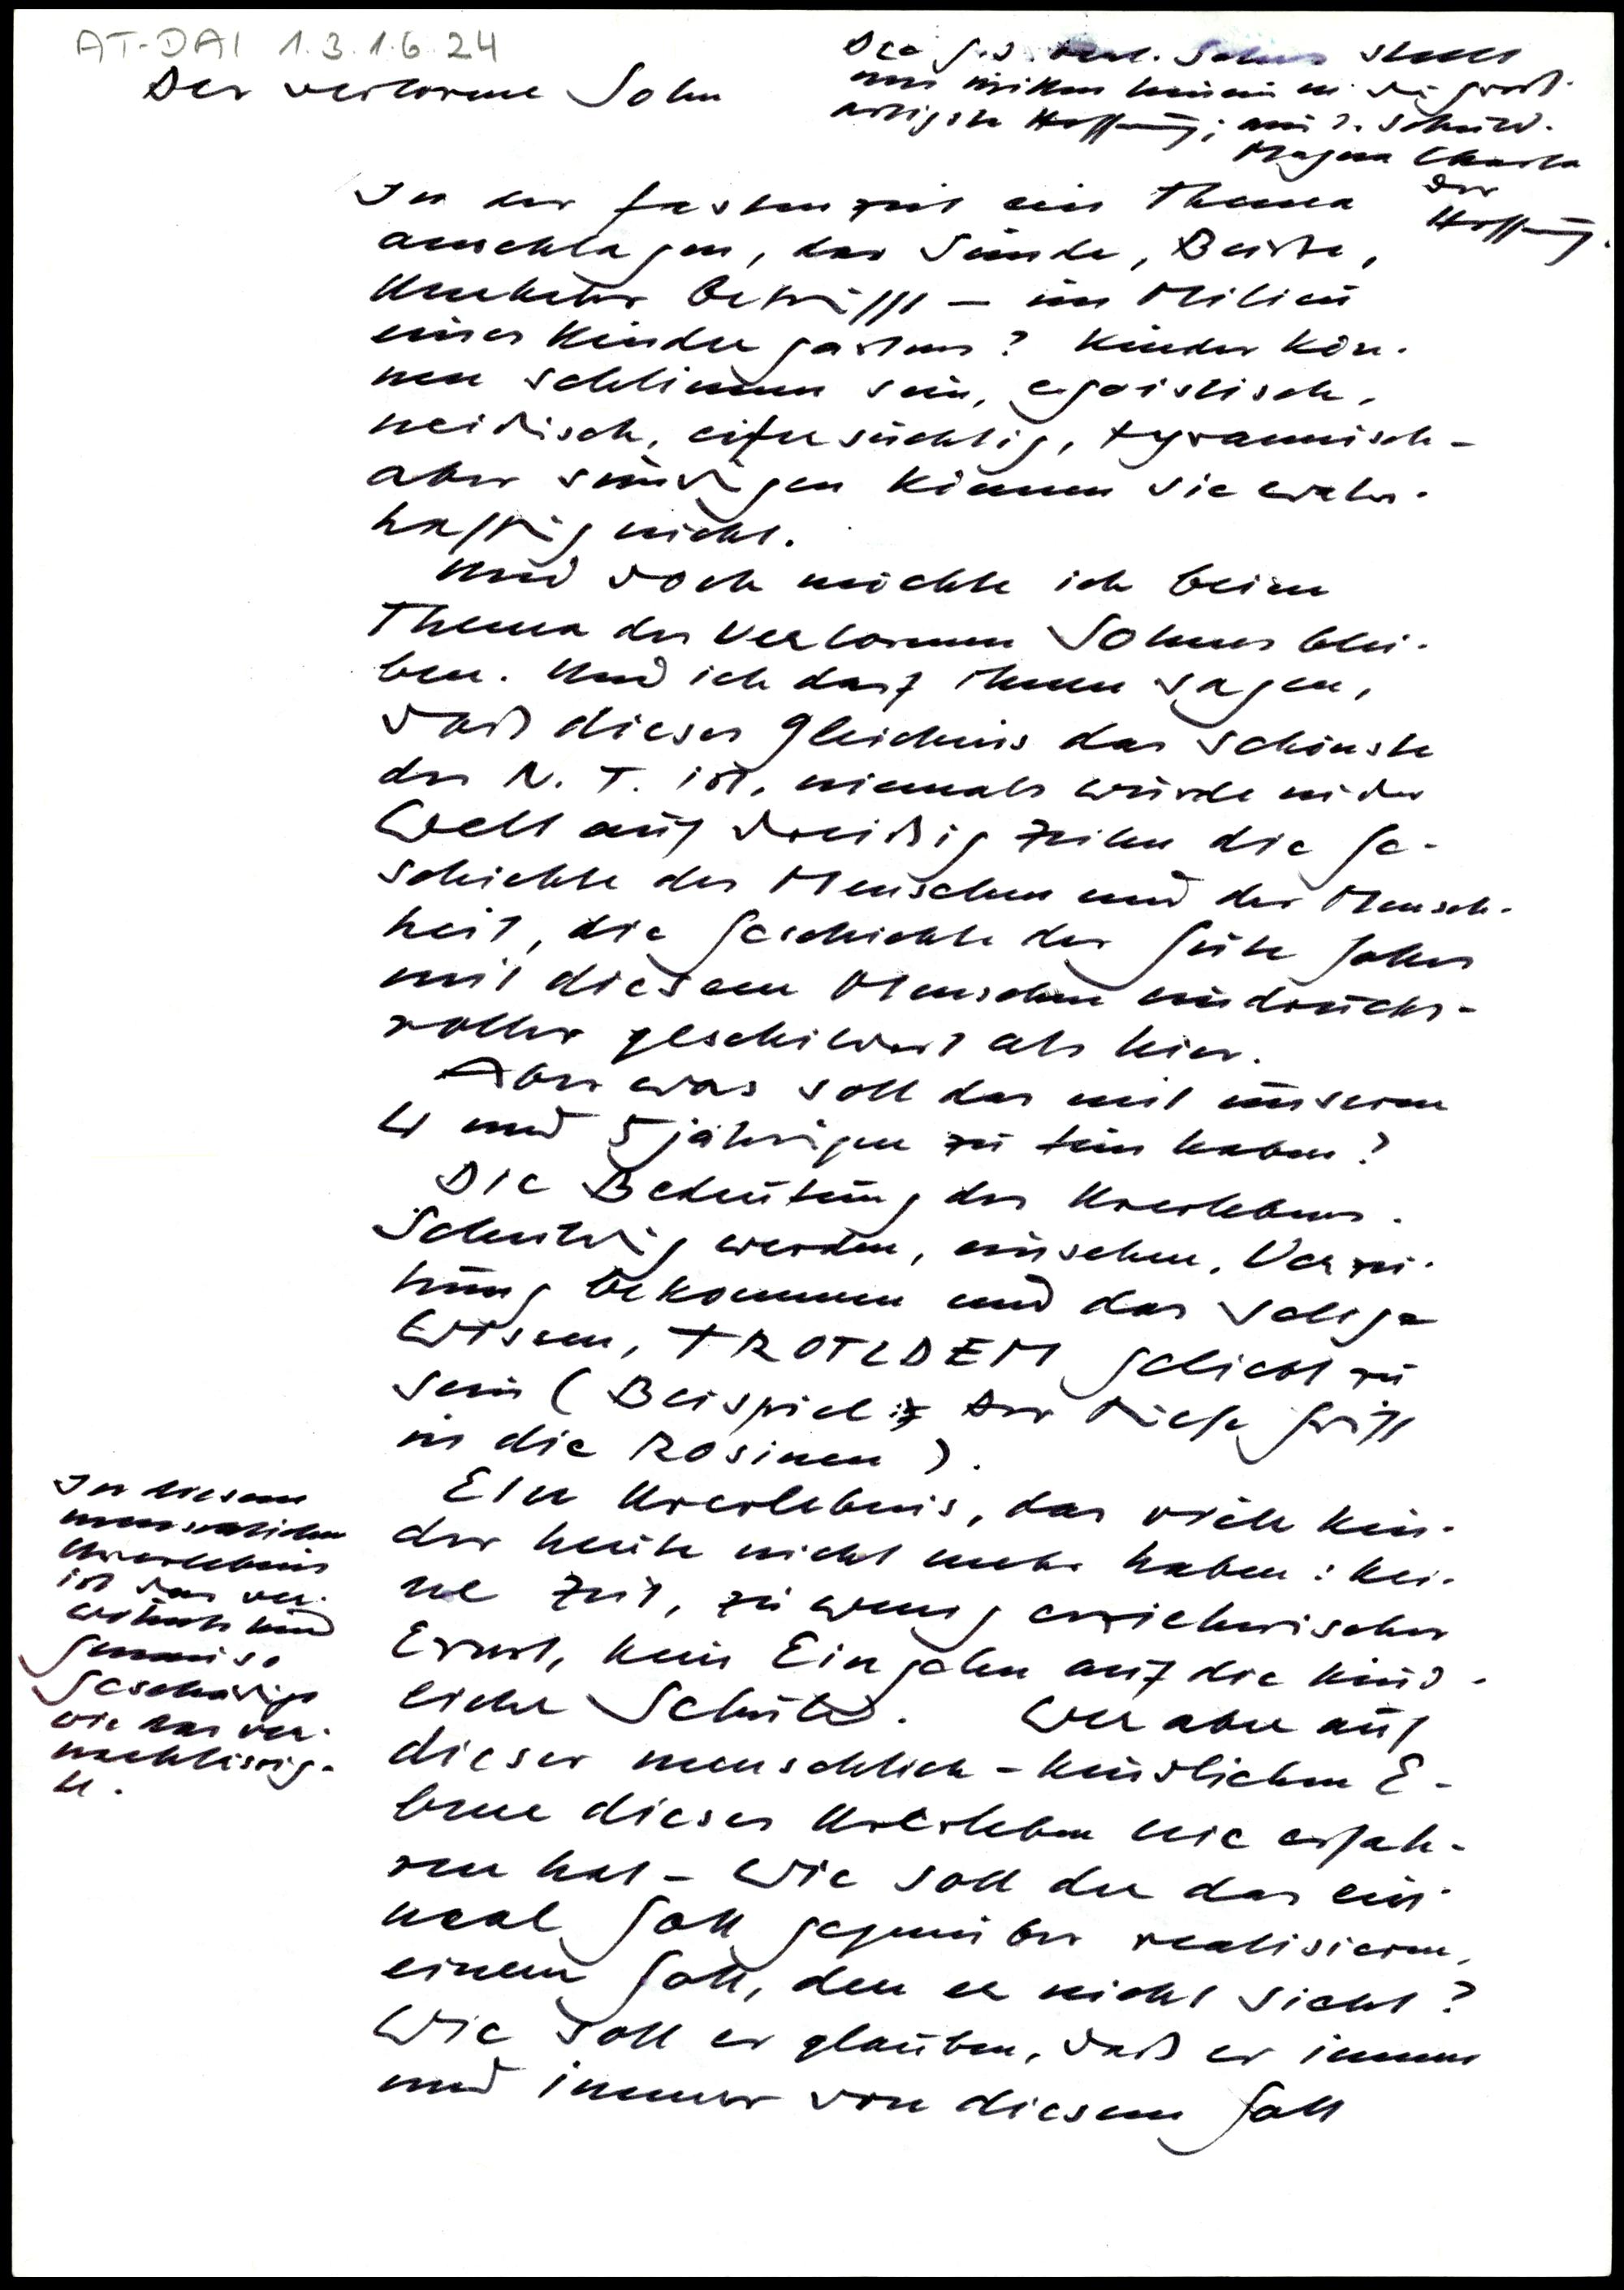 AT-DAI 1.3.1.6.24
Der verlorene Sohn
Die G. d. verl. Sohnes stellt
uns mitten hinein in die groß-
artigste Hoffnung; mit d. Schuld.
Magna Charta
der
Hoffnung.
In der Fastenzeit ein Thema
anschlagen, das Sünde, Buße,
Umkehr betrifft – im Milieu
eines Kindergartens? Kinder kön-
nen schlimm sein, egoistisch,
neidisch, eifersüchtig, tyrannisch –
aber sündigen können sie wahr-
haftig nicht.
Und doch möchte ich beim
Thema des verlorenen Sohnes blei-
ben. Und ich darf Ihnen sagen,
daß dieses Gleichnis das schönste
des N. T. ist, niemals wurde in der
Welt auf dreißig Zeilen die Ge-
schichte des Menschen und der Mensch-
heit, die Geschichte der Güte Gottes
mit diesem Menschen eindrucks-
voller geschildert als hier.
Aber was soll das mit unseren
4 und 5jährigen zu tun haben?
Die Bedeutung des Urerlebens.
Schuldig werden, einsehen, Verzei-
hung bekommen und das selige
Wissen, TROTZDEM geliebt zu
sein (Beispiel: Der tiefe Griff
in die Rosinen).
Ein Urerlebnis, das viele Kin-
der heute nicht mehr haben: Kei-
ne Zeit, zu wenig erzieherischer
Ernst, kein Eingehen auf die kind-
liche Schuld. Wer aber auf
dieser menschlich-kindlichen E-
bene dieses Urerleben nie erfah-
ren hat – wie soll der das ein-
mal Gott gegenüber realisieren,
einem Gott, den er nicht sieht?
Wie soll er glauben, daß er immer
und immer von diesem Gott
In diesem
menschlichen
Urerlebnis
ist das ver-
wöhnte Kind
genauso
Geschädigt
wie das ver-
nachlässig-
te.